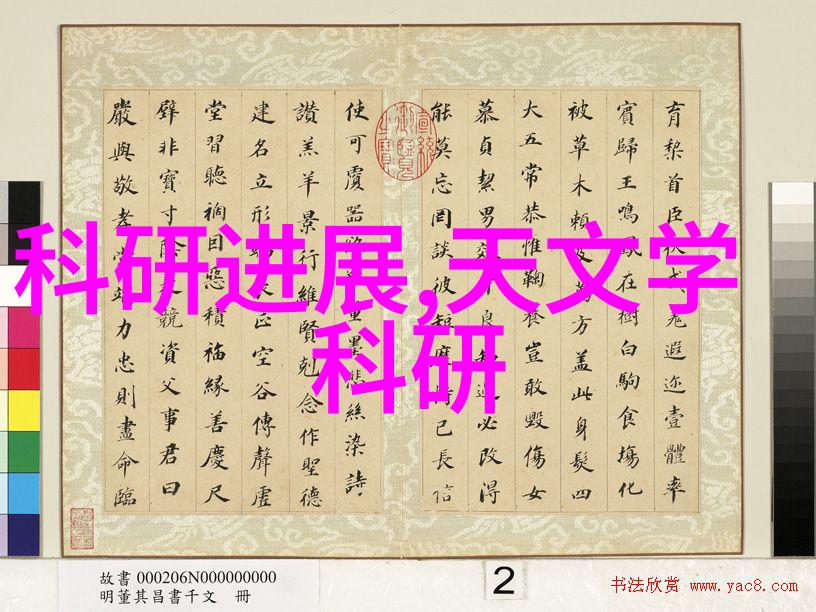 科研进展,天文学
科研
育黎首臣伏戎羌遐迩壹體率
賓歸王鳴鳳在樹白駒食塲化
被草木賴及萬方蓋此身髮四
大五常恭惟鞠養豈敢毀傷女
慕貞絜男效才良知過必改得
能莫忘罔談彼短靡恃己長信
使可覆器欲難量墨悲絲染詩
讚羔羊景行維賢剋念作聖德
建名立形端表正空谷傳聲虛
堂習聽禍因惡積福緣善慶尺
璧非寶寸陰是競資父事君曰
嚴與敬孝當竭力忠則盡命臨
宣統御覽之寶
故書 000206N000000000
明董其昌書千文 冊
2
书法欣赏 www.yac8.com